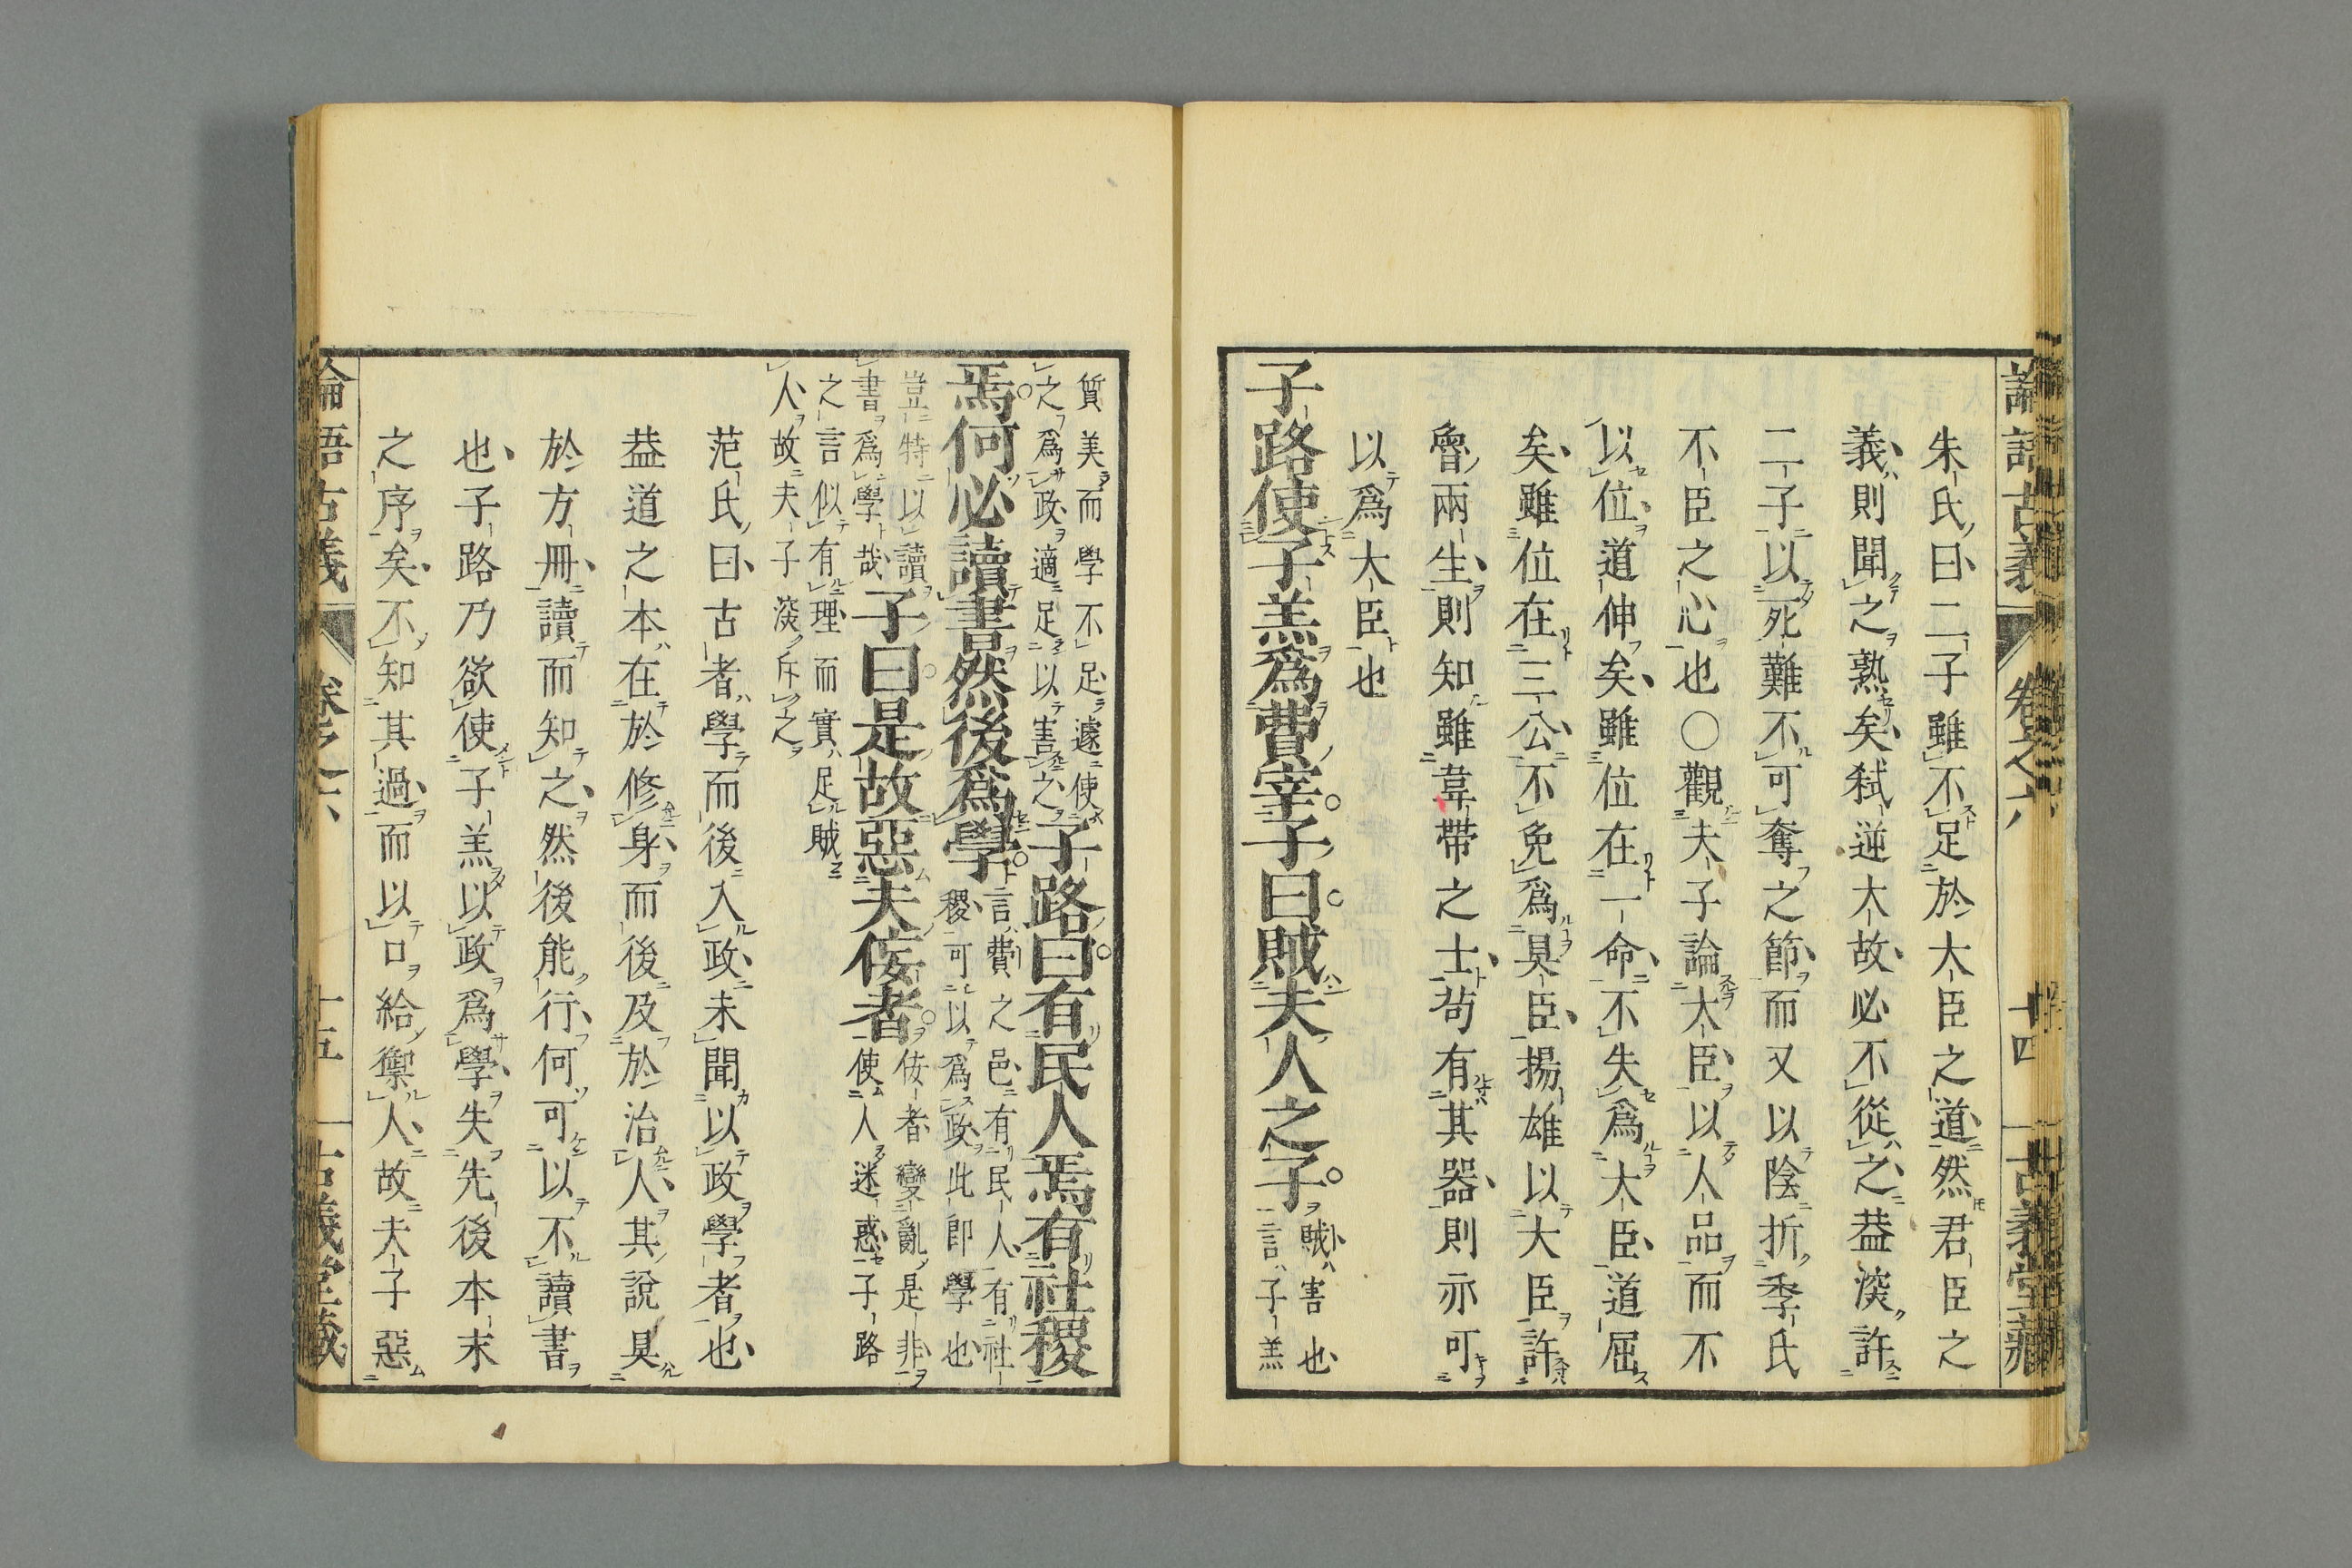 論語古義 卷之六 十四 古義堂藏
朱氏曰二子雖不足於大臣之道然君臣之
義則聞之熟矣弑逆大故必不從之葢深許
二子以死難不可奪之節而又以陰折季氏
不臣之心也〇觀夫子論大臣以人品而不
以位道伸矣雖位在一命不失爲大臣道屈
矣雖位在三公不免爲具臣揚雄以大臣許
魯兩生則知雖韋帶之士苟有其器則亦可
以爲大臣也
子路使子羔爲費宰子曰賊夫人之子
賊害也
言子羔
質美而學不足遽使
之爲政適足以害之
子路曰有民人焉有社稷
焉何必讀書然後爲學
言費之邑有民人有社
稷可以爲政此卽學也
豈特以讀
書爲學哉
子曰是故惡夫佞者
佞者變亂是非
使人迷惑子路
之言似有理而實足賊
人故夫子深斥之
范氏曰古者學而後入政未聞以政學者也
葢道之本在於修身而後及於治人其說具
於方冊讀而知之然後能行何可以不讀書
也子路乃欲使子羔以政爲學失先後本末
之序矣不知其過而以口給禦人故夫子惡
論語古義 卷之六 十五 古義堂藏